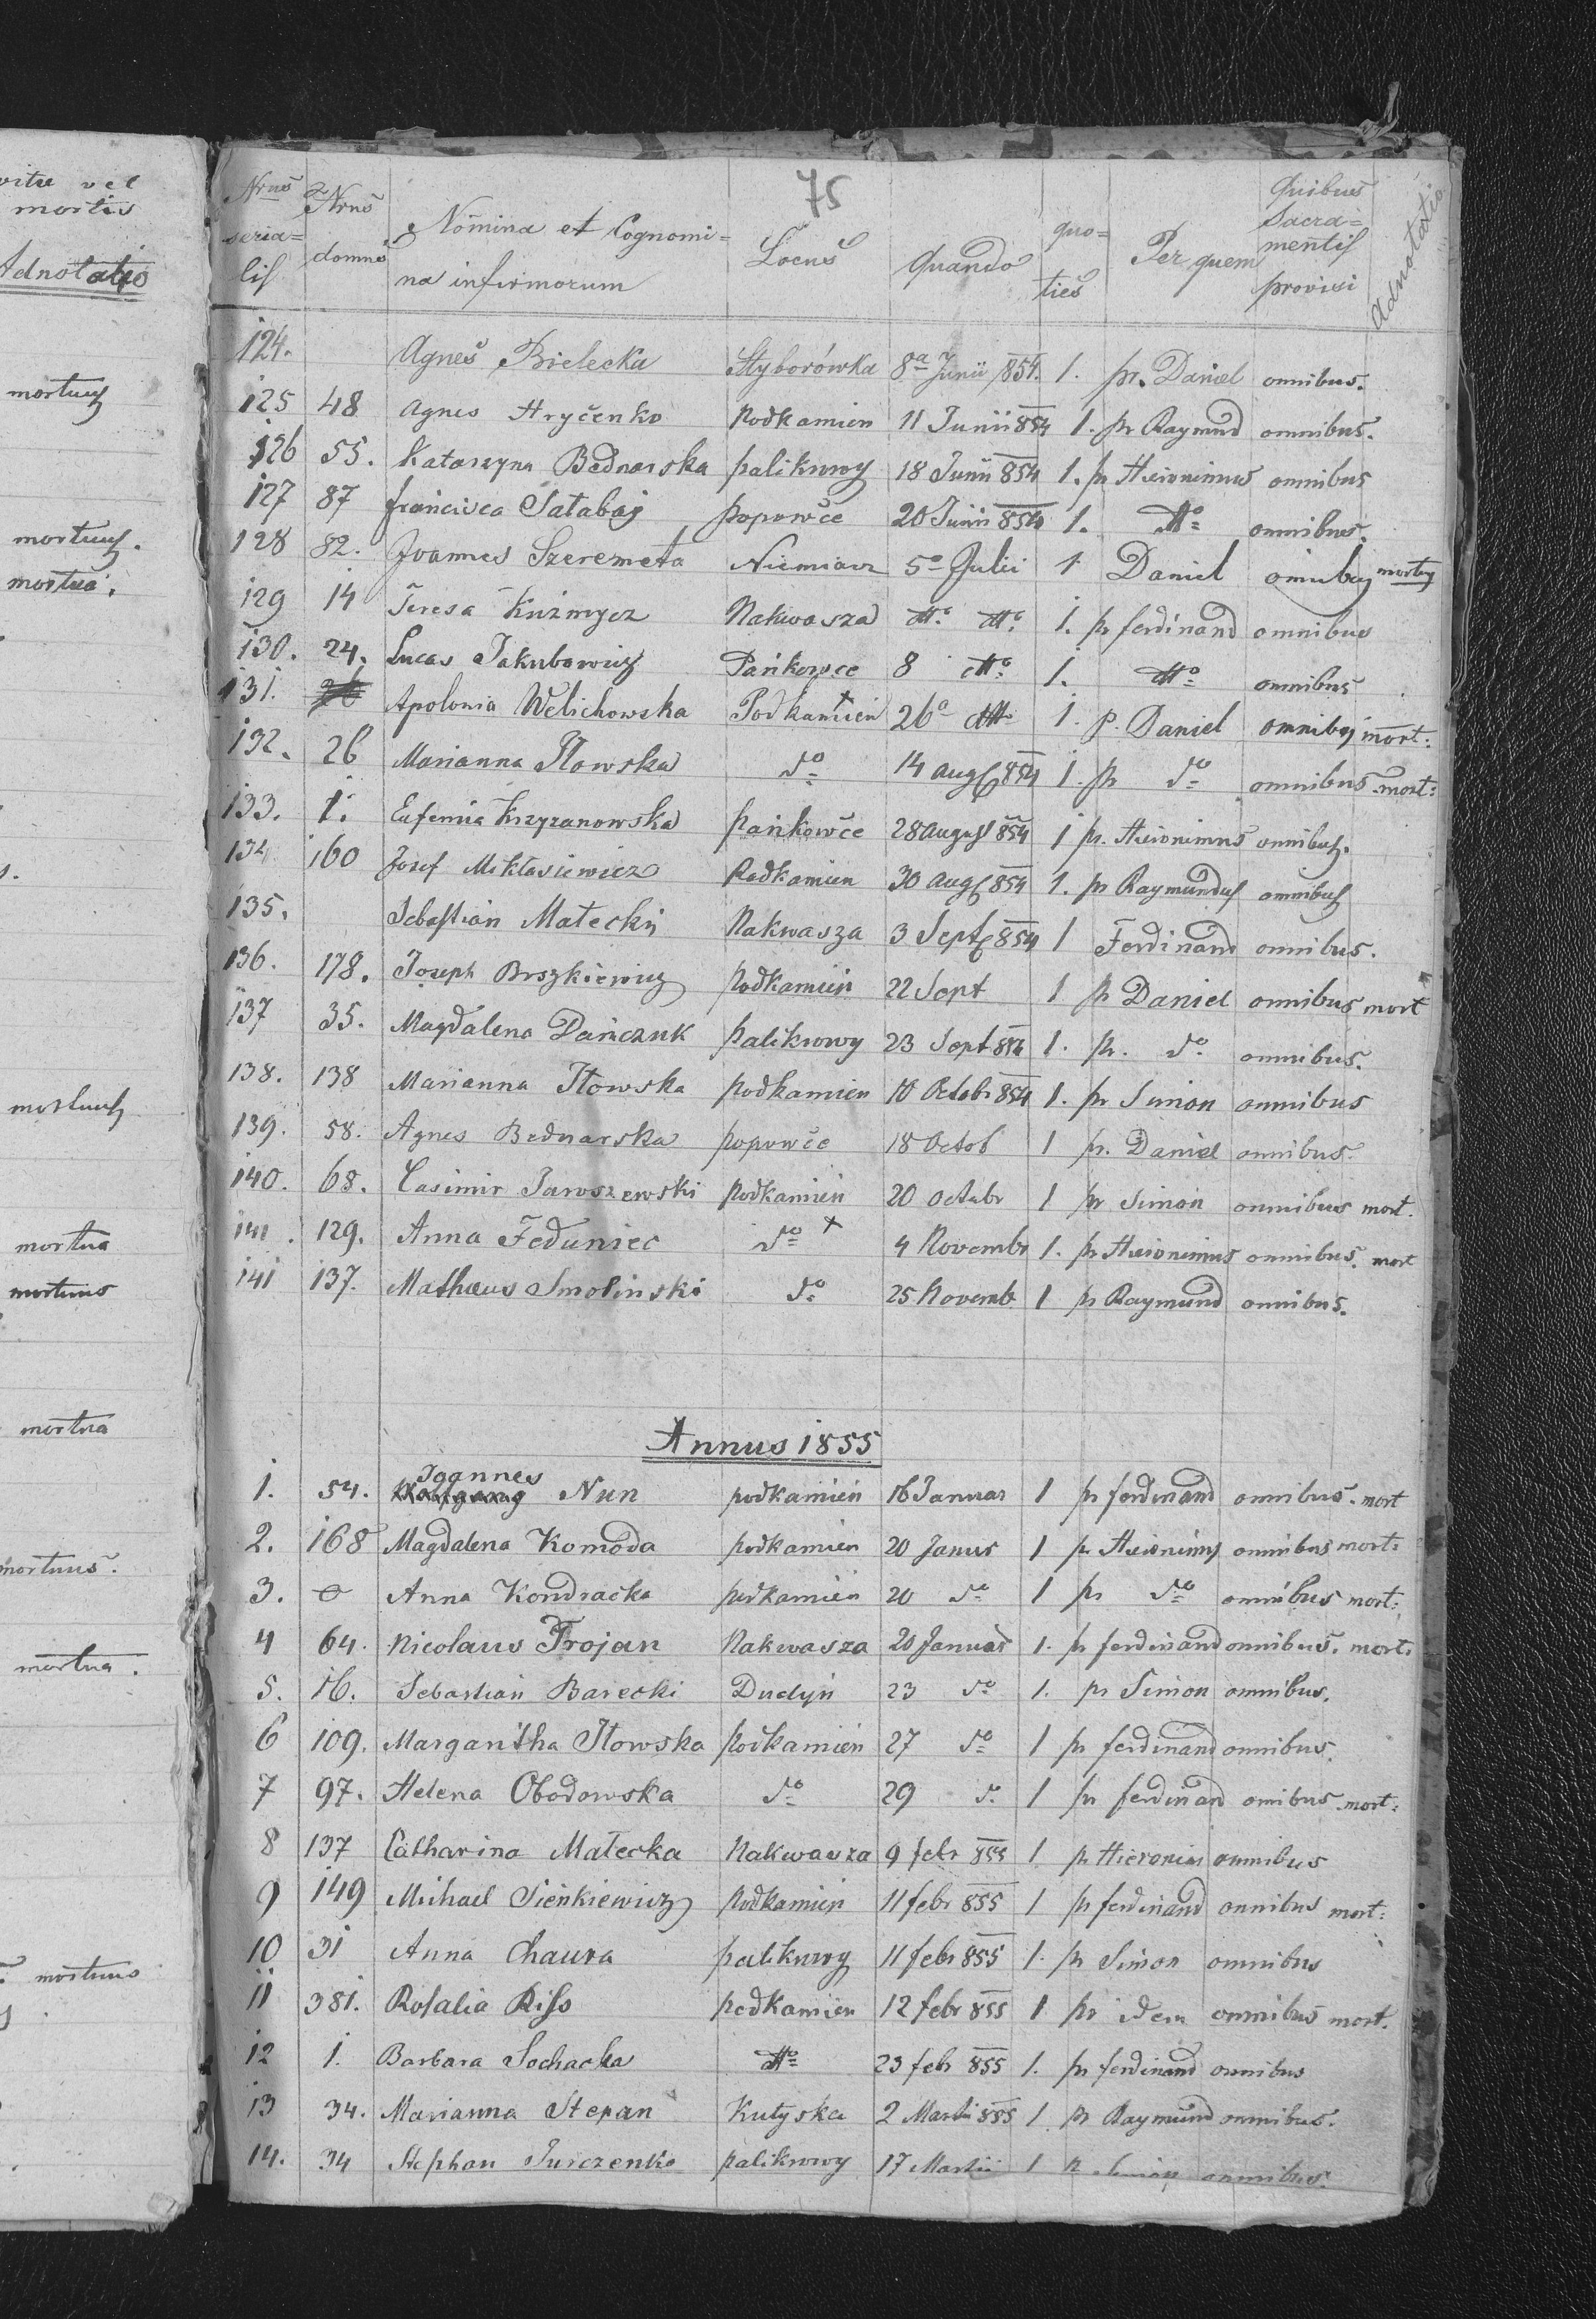 vitæ vel
mortis
Adnotatio
mortuus
mortuus.
mortua.
mortuus
mortua
mortuus
mortua
mortuus.
mortua.
mortuus
75
Nrus serialis Nrus domus Nomina et Cognomina infirmorum Locus Quando quoties Per quem Quibus Sacramentis provisi Adnotatio
124. Agnes Bielecka Styborówka 8a Junii 854. 1. pr. Daniel omnibus.
125 48 Agnes Hryčenko Podkamien 11 Junii 854 1. pr Raymund omnibus.
126 55. Katarzyna Bednarska palikrowy 18 Junii 854 1. pr Hieronimus omnibus
127 87 francisca Satabaj popowče 20 Junii 854 1. dtto omnibus.
128 82. Joannes Szeremeta Niemiacz 5o Julii 1 Daniel omnibus mortuus
129 14 Teresa Kuzmycz Nakwasza dtto dtto 1. pr ferdinand omnibus
130. 24. Lucas Jakubowicz Pańkowce 8 dtto 1. dtto omnibus
131. Apolonia Welichowska Podkamień 26a dtto 1. P. Daniel omnibus mort:
132. 26 Marianna Iłowska do 14 Aug 854 1. pr do omnibus mort:
133. 1. Eufemia Krzyzanowska pańkowče 28 August 854 1 pr. Hieronimus omnibus.
134 160 Josef Mikłasiewicz Podkamien 30 Aug 854 1. pr Raymundus omnibus
135. Sebastian Małecki Nakwasza 3 Sept 854 1 Ferdinand omnibus.
136. 178. Joseph Brszkiewicz podkamień 22 Sept 1 pr Daniel omnibus mort
137 35. Magdalena Dańczuk palikrowy 23 Sept 854 1. pr. do omnibus.
138. 138 Marianna Iłowska podkamien 10 Octobr 854 1. pr Simon omnibus
139. 58. Agnes Bednarska popowče 18 Octob 1 pr. Daniel omnibus.
140. 68. Casimir Jaroszewski podkamień 20 octobr 1 pr Simon omnibus mort.
141. 129. Anna Feduniec do + 4 Novembr 1. pr Hieronimus omnibus. mort
141 137. Mathæus Smolinski do 25 Novemb 1 pr Raymund omnibus.
Annus 1855
1. 54. Joannes Nun podkamien 16 Januar 1 pr ferdinand omnibus. mort
2. 168 Magdalena Komoda podkamien 20 Januar 1 pr Hieronimus omnibus mort:
3. 0 Anna Kondracka podkamien 20 do 1 pr do omnibus mort:
4 64. Nicolaus Trojan Nakwasza 20 Januar 1. pr ferdinand omnibus. mort.
5. 16. Sebastian Barecki Dudyn 23 do 1. pr Simon omnibus.
6 109. Margaritha Iłowska Podkamien 27 do 1 pr ferdinand omnibus.
7 97. Helena Obodowska do 29 do 1 pr ferdinand omnibus. mort:
8 137 Catharina Małecka Nakwasza 9 febr 855 1. pr Hieronim omnibus
9 149 Michael Sieńkiewicz Podkamień 11 febr 855 1 pr ferdinand omnibus mort:
10 31 Anna Chaura palikrowy 11 febr 855 1. pr Simon omnibus
11 381. Rosalia Riss podkamien 12 febr 855 1 pr idem omnibus mort.
12 1. Barbara Sochacka dtto 23 febr 855 1. pr ferdinand omnibus
13 34. Marianna Stepan Kutyska 2 Martii 855 1. pr Raymund omnibus.
14. 34 Stephan Jurczenko palikrowy 17 Martii 1 pr Simon omnibus.